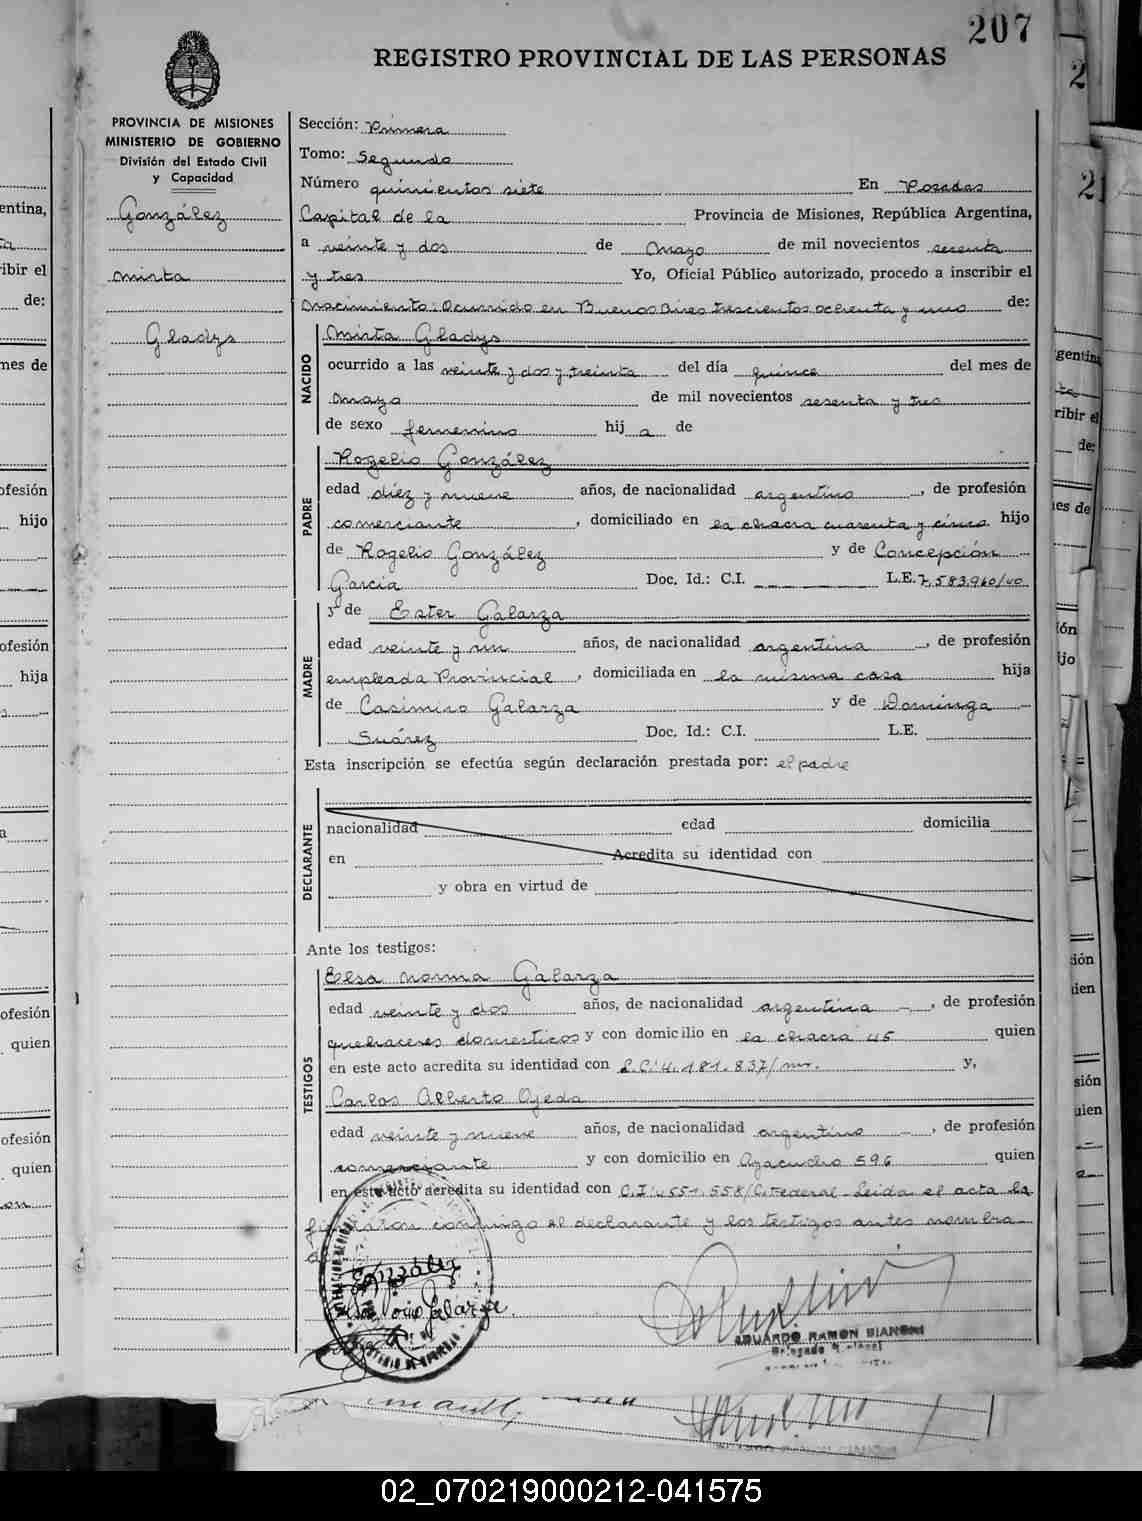 207
REGISTRO PROVINCIAL DE LAS PERSONAS
PROVINCIA DE MISIONES
MINISTERIO DE GOBIERNO
División del Estado Civil
y Capacidad
González
Mirta
Gladys
Sección: Primera
Tomo: Segundo
Número quinientos siete En Posadas
Capital de la Provincia de Misiones, República Argentina,
a veinte y dos de Mayo de mil novecientos sesenta
y tres Yo, Oficial Público autorizado, procedo a inscribir el
Nacimiento: Ocurrido en Buenos Aires trescientos ochenta y uno de:
NACIDO
Mirta Gladys
ocurrido a las veinte y dos y treinta del día quince del mes de
Mayo de mil novecientos sesenta y tres
de sexo femenino hij a de
PADRE
Rogelio González
edad diez y nueve años, de nacionalidad argentino, de profesión
comerciante, domiciliado en la chacra cuarenta y cinco hijo
de Rogelio González y de Concepción
García Doc. Id.: C.I. L.E. 7.583.960/40
MADRE
y de Ester Galarza
edad veinte y un años, de nacionalidad argentina, de profesión
empleada Provincial, domiciliada en la misma casa hija
de Casimiro Galarza y de Dominga
Suárez Doc. Id.: C.I. L.E.
Esta inscripción se efectúa según declaración prestada por: el padre
DECLARANTE
nacionalidad edad domicilia
en Acredita su identidad con
y obra en virtud de
Ante los testigos:
TESTIGOS
Elsa Norma Galarza
edad veinte y dos años, de nacionalidad argentina, de profesión
quehaceres domesticos y con domicilio en la chacra 45 quien
en este acto acredita su identidad con L.C. 4.181.837/ y,
Carlos Alberto Ojeda
edad veinte y nueve años, de nacionalidad argentino, de profesión
comerciante y con domicilio en Ayacucho 596 quien
en este acto acredita su identidad con C.I. 551.558/C. Federal - Leida el acta la
firmaron conmigo el declarante y los testigos antes nombra
González
Galarza
EDUARDO RAMON BIANCHI
02_070219000212-041575